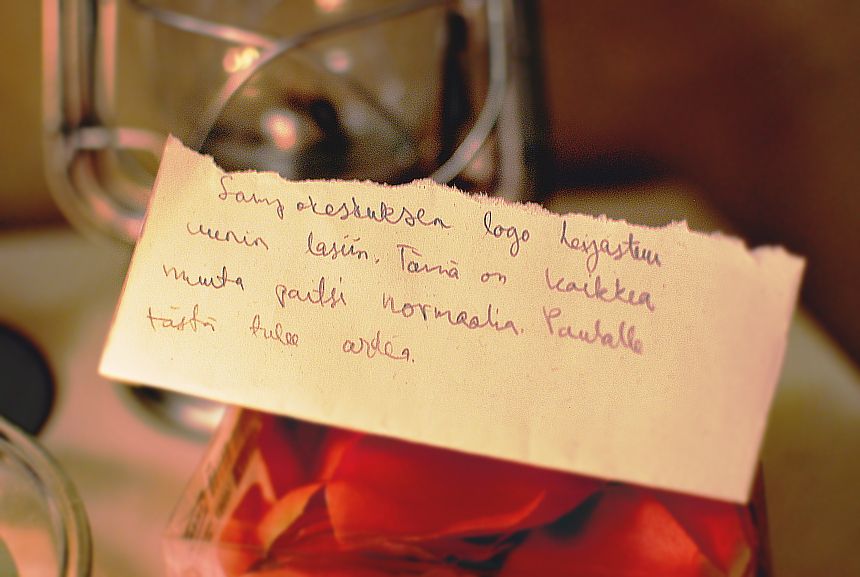 Sampokeskuksen logo heijastuu
viinin lasiin. Tämä on kaikkea
muuta paitsi normaalia. Paulalle
tästä tulee arkea.